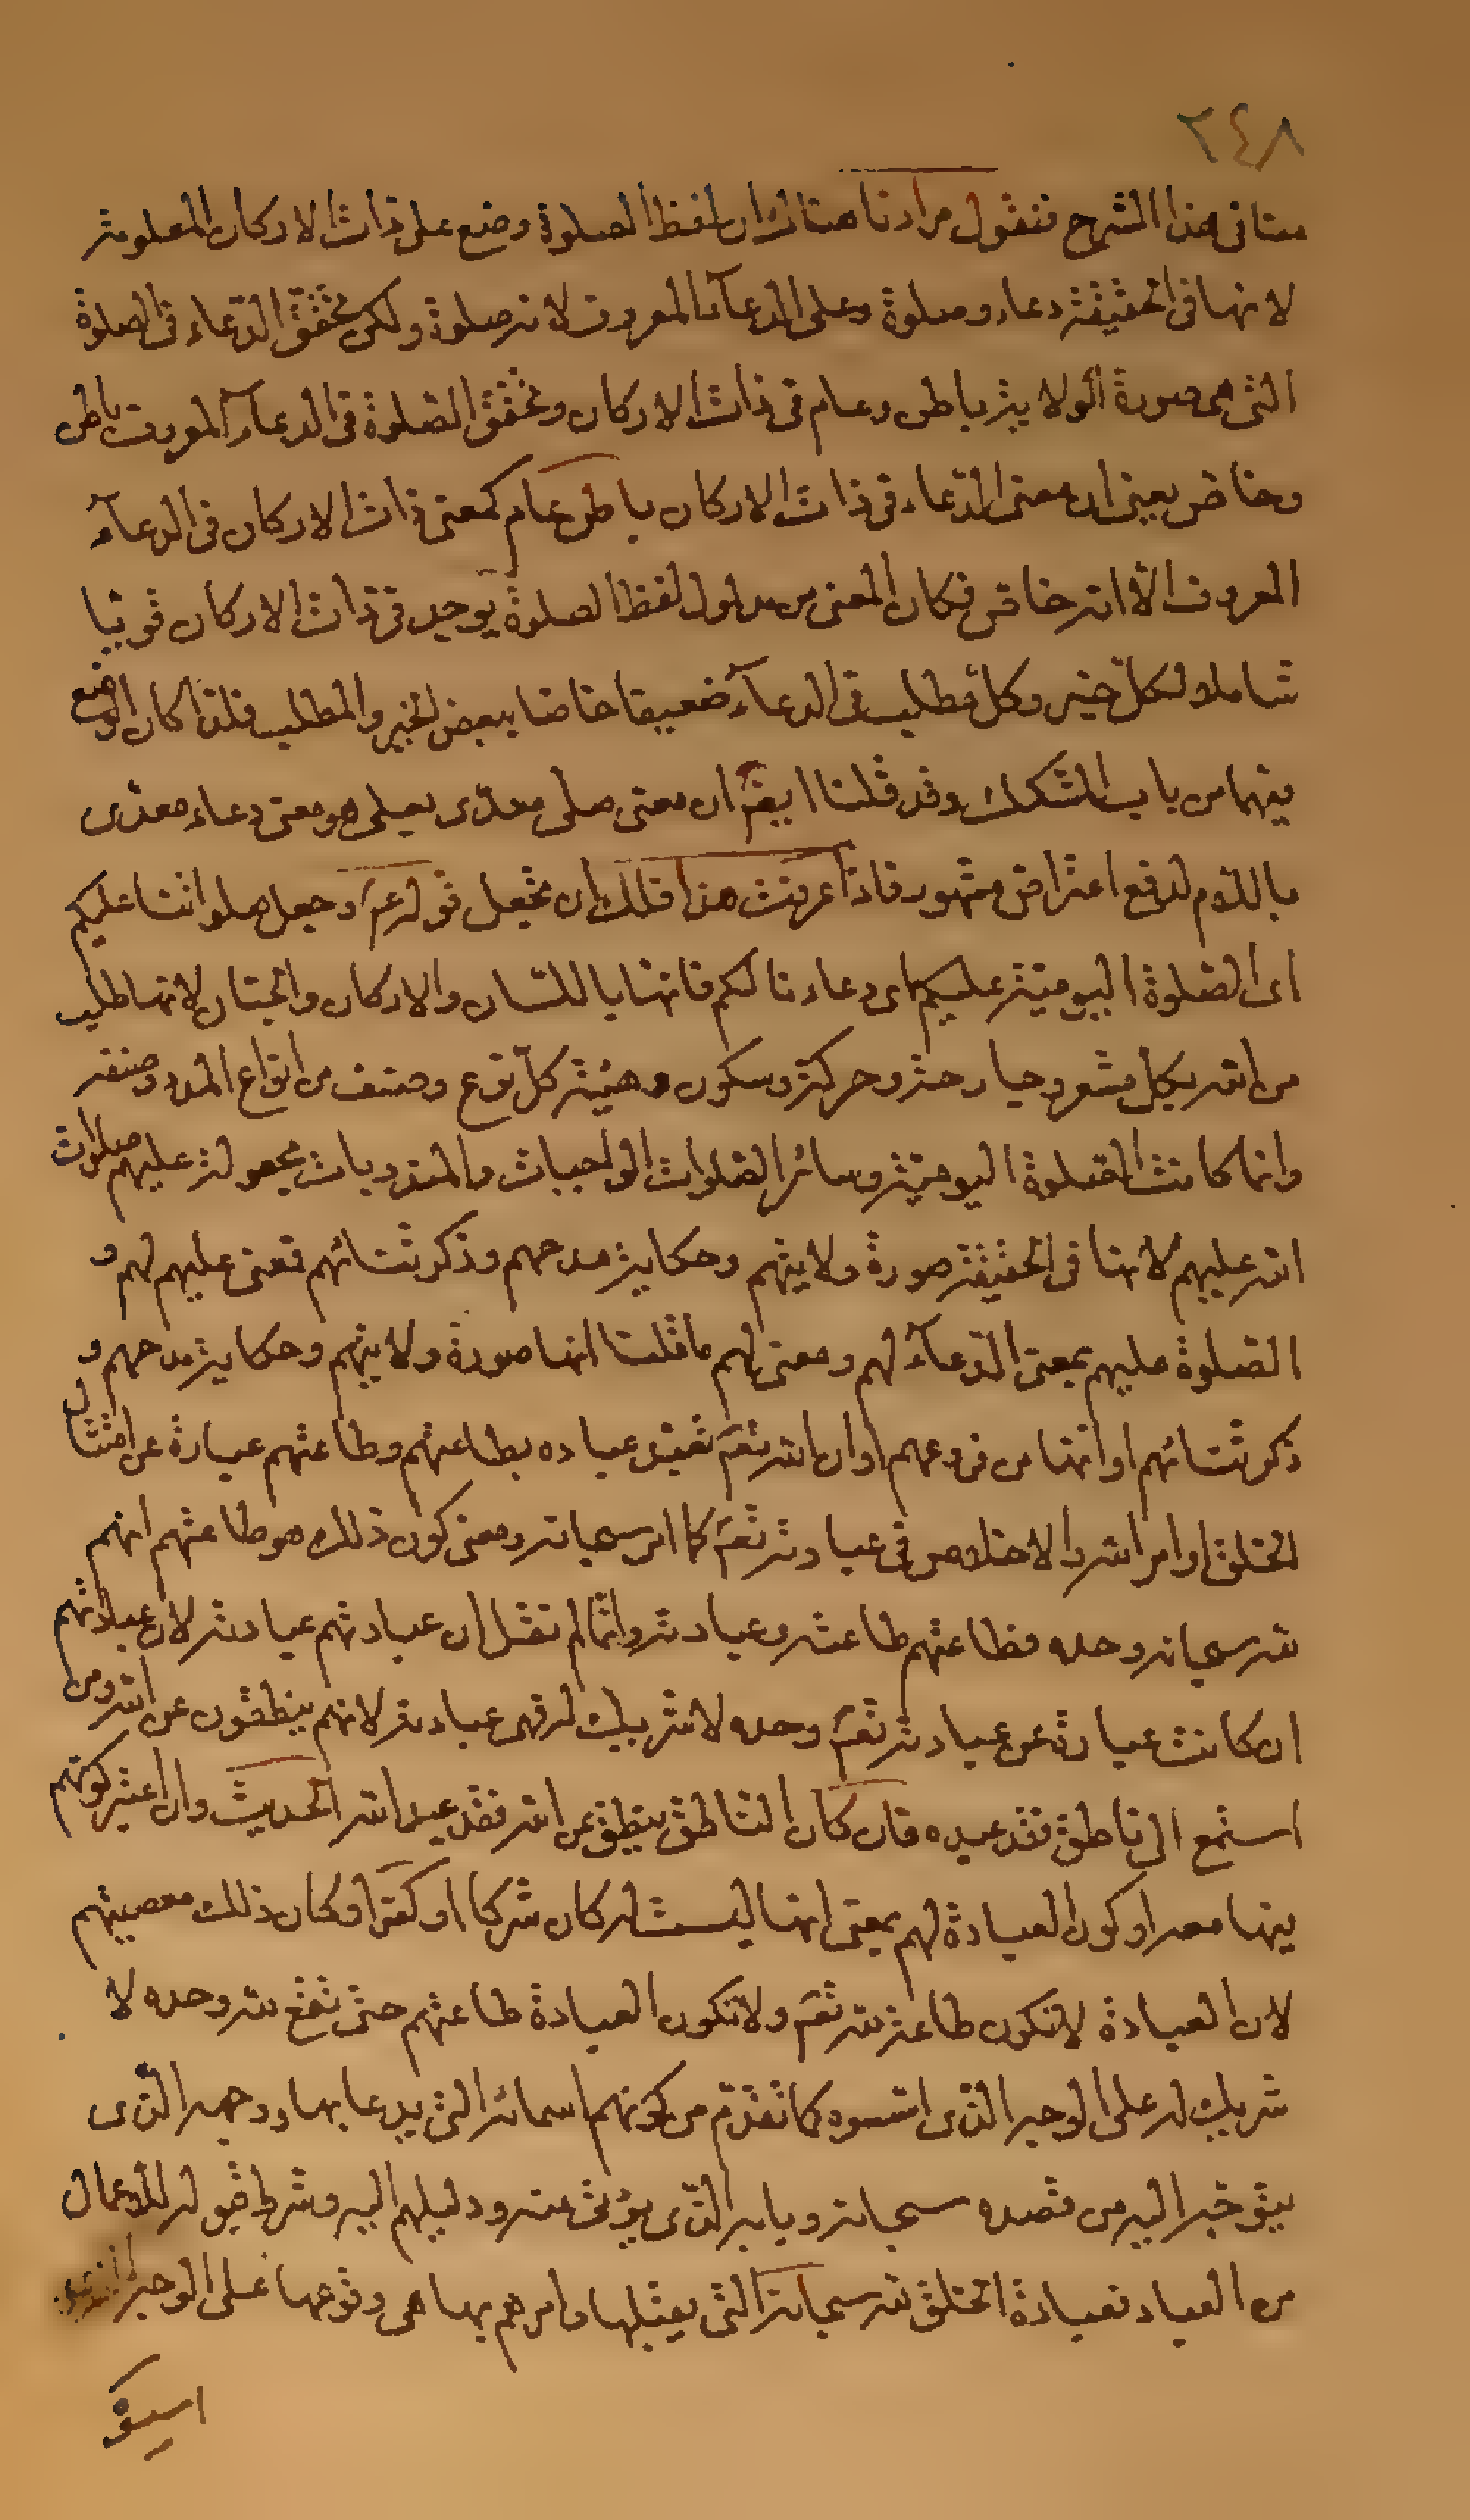 ٢٤٨
منا فى هذا الشرح فنقول مرادنا هناك ان لفظ الصلوة وضع على ذات الاركان المعلومة
لانها فى الحقيقة دعاء وصلوة وعلى الدعآء المعروف لانه صلوة ولكن تحقق الدّعاء فى الصلوة
التى هى صورة الولاية باطن وعام فى ذات الاركان وتحقق الصّلوة فى الدعآء المعروف باطن
وخاص يعنى ان معنى الدّعاء فى ذات الاركان باطن عام كمعنى ذات الاركان فى الدعآء
المعروف الّا انه خاص فكان المعنى من مدلول لفظ الصلوة يوجد فى ذات الاركان قويّا
شاملا لكلّ خير وكلّ مطلب فى الدعآء ضعيفا خاصّا ببعض الخير والمطلب فلذا كان الوضع
فيهما من باب المشكك وقد قلنا ايضاً ان معنى صلى معدّى بعلى هو معنى دعاء معدّى
باللام لدفع اعتراض مشهور فاذا عرفت هذا فلك ان تجعل قوله ع وجعل صلواتنا عليكم
اى الصّلوة اليوميّة عليكم اى دعاءنا لكم فانها باللسان والاركان والجنان لانها طلب
من الله بكل مشعر وجارحة وحركة وسكون وهيئة كلّ نوع وصنف من انواع المدد وصنفه
وانما كانت الصّلوة اليوميّة وسائر الصّلوات الواجبات والمندوبات مجعولة عليهم صلوات
الله عليهم لانها فى الحقيقة صورة ولايتهم وحكاية مدحهم وذكر ثنائهم فمعنى عليهم لهم و
الصّلوة عليهم بمعنى الدّعآء لهم ومعنى لهم ما قلنا انها صورة ولايتهم وحكاية مدحهم و
ذكر ثنائهم او انها من فروعهم او ان الله تعم تعبّد عباده بطاعتهم وطاعتهم عبارة عن امتثال
الخلق اوامر الله والاخلاص فى عبادته تعم كما امر سبحانه ومعنى كون ذلك هو طاعتهم انهم
لله سبحانه وحده فطاعتهم طاعته وعبادته وانّما لم نقل ان عبادتهم عبادته لان عبادتهم
ان كانت عبارة عن عبادته تعم وحده لا شريك له فهى عبادته لانهم ينطقون عن الله ومن
استمع الى ناطق فقد عبده فان كان الناطق ينطق عن الله فقد عبد الله الحديث وان اعتبر كونهم
فيها معه او كون العبادة لهم بمعنى انها ليست له كان شركا او كفرا وكان ذلك معصيتهم
لان العبادة لا تكون طاعة لله تعم ولا تكون العبادة طاعتهم حتى تقع لله وحده لا
شريك له على الوجه الذى اسّسوه كما تقدّم من كونهم اسمائه التى يدعا بها ووجهه الذى
يتوجّه اليه من قصده سبحانه وبابه الذّى يؤتى منه ودليلهم اليه وشرط قبوله للاعمال
من العباد فعبادة الخلق لله سبحانه التى يقبلها وامرهم بها هى وقوعها على الوجه الذى
اسسو